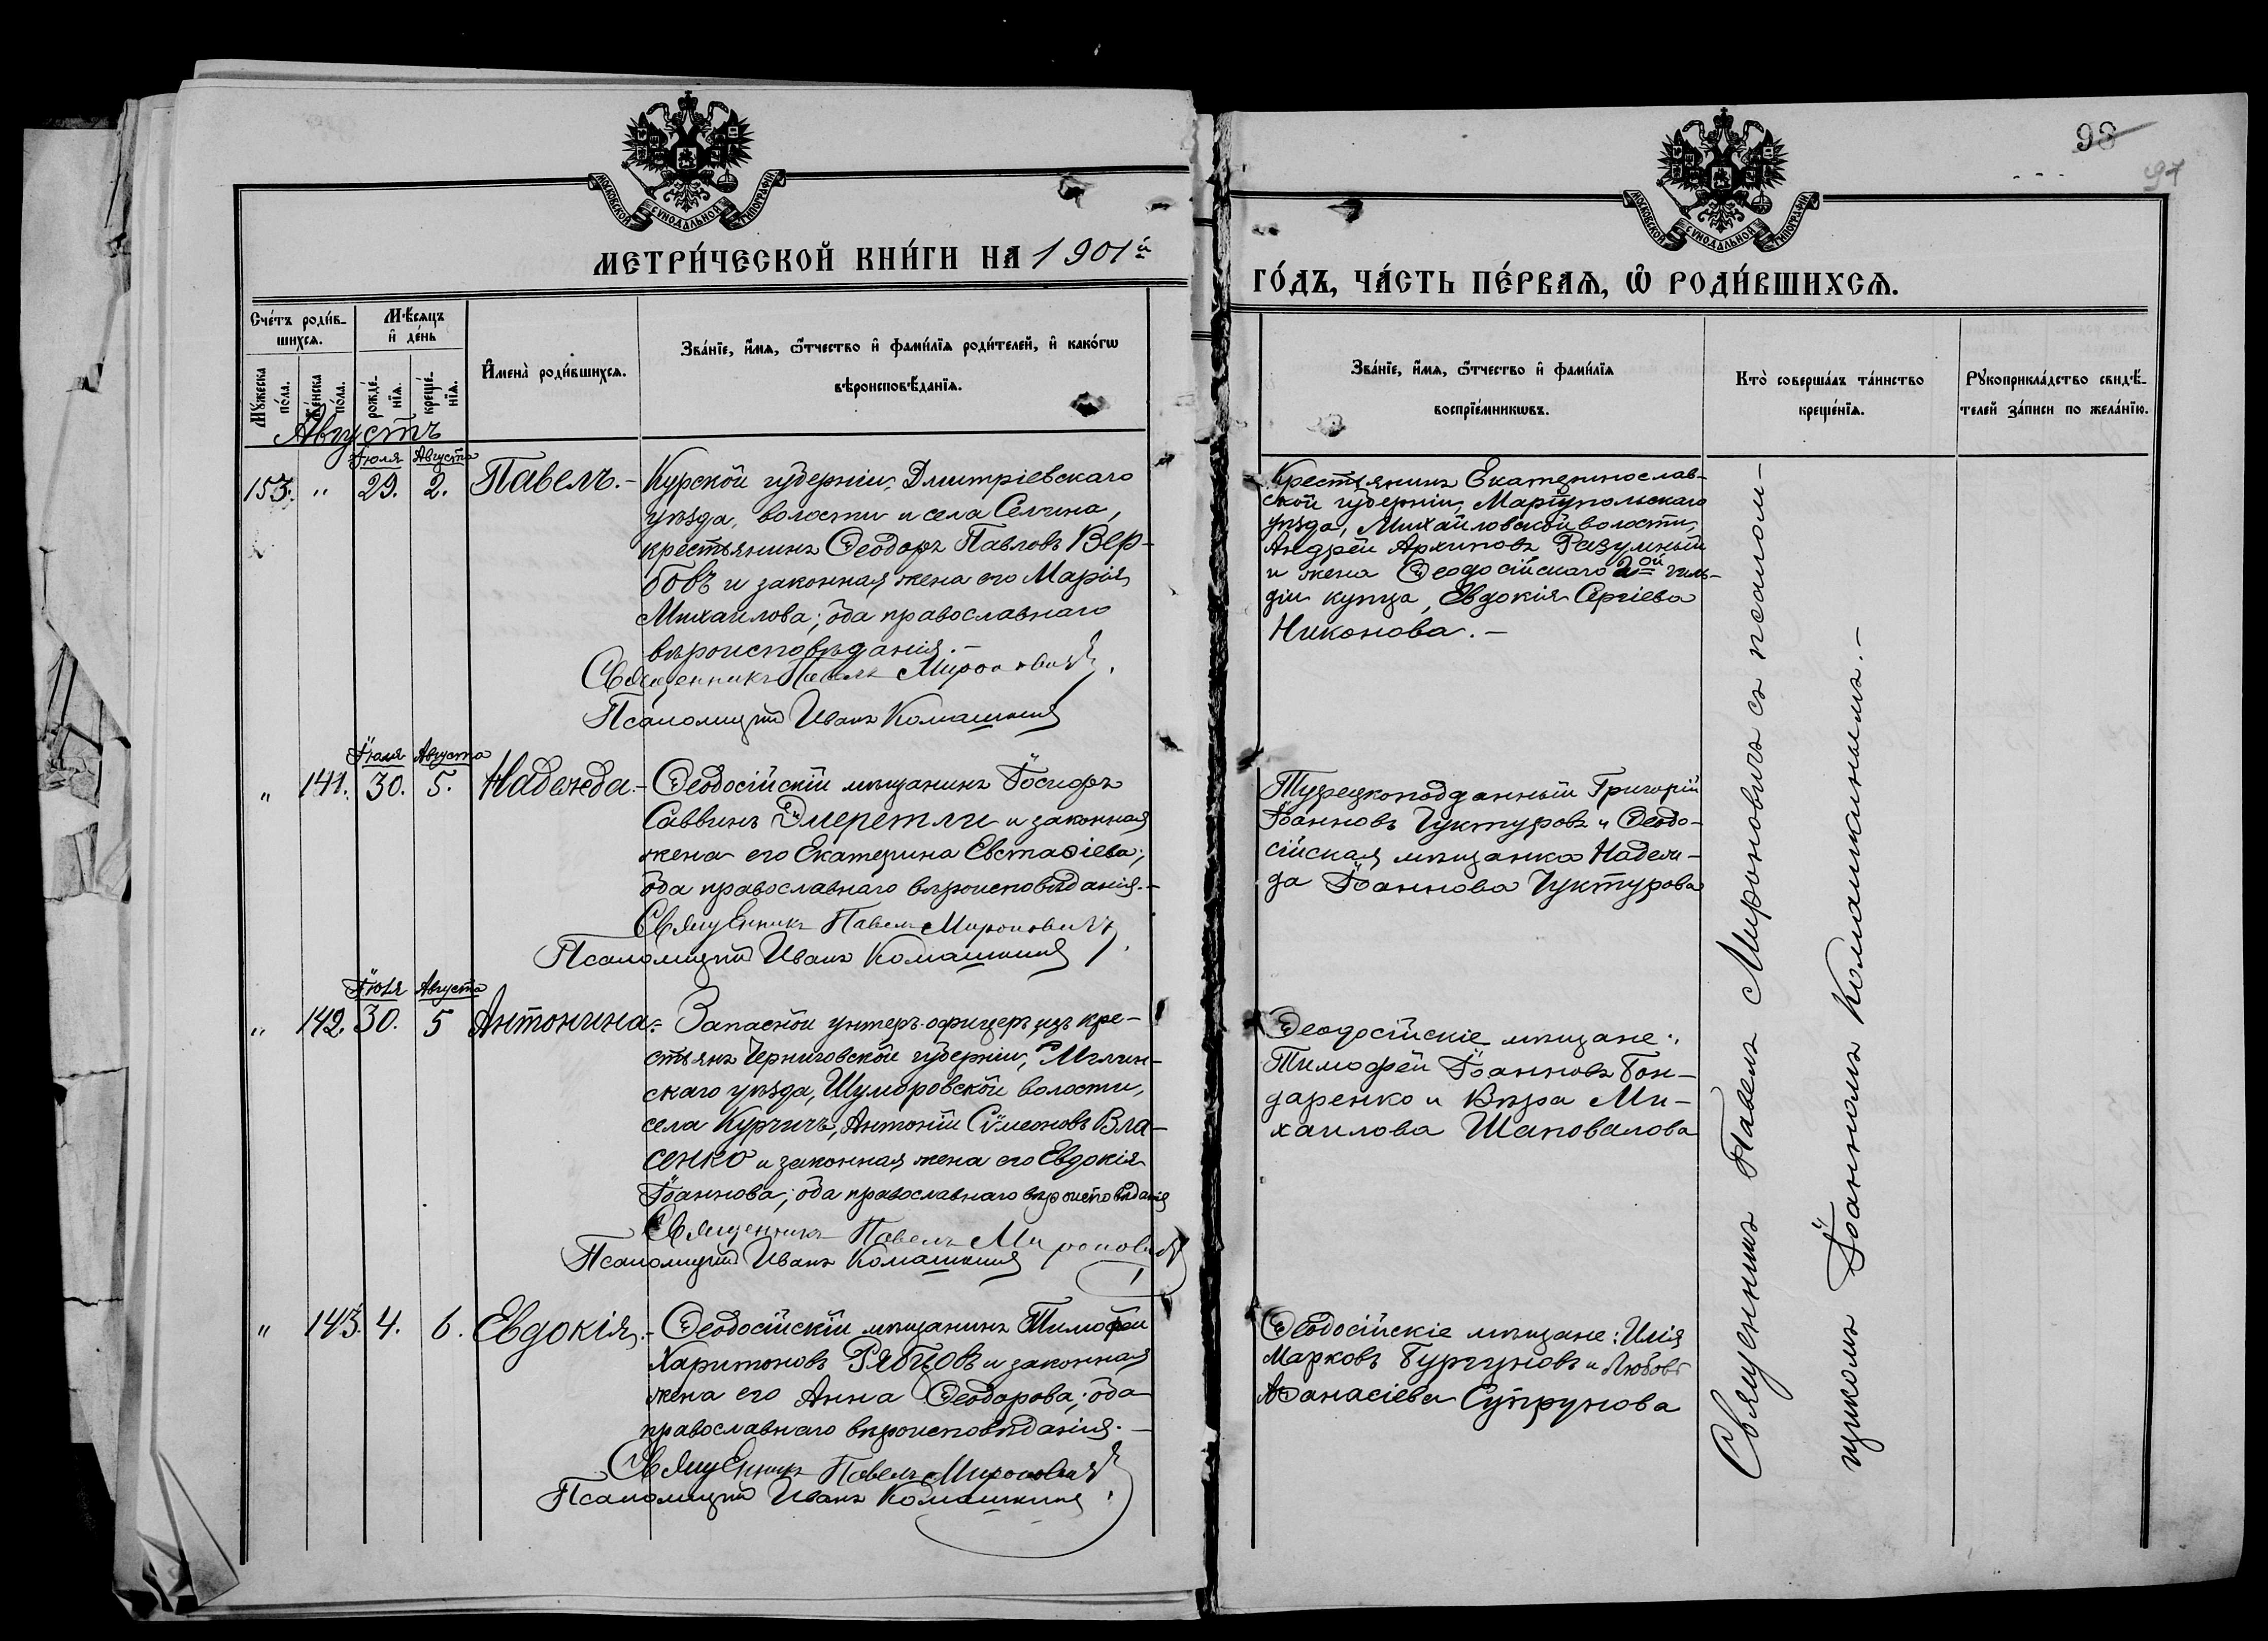 МОСКОВСКОЙ СѴНОДАЛЬНОЙ ТИПОГРАФІИ
МЕТРИ́ЧЕСКОЙ КНИ́ГИ НА 1901й
Сче́тъ роди́в-
шихсѧ.
Мꙋ́жеска
по́ла.
Же́нска
по́ла.
Мѣ́сѧцъ
и҆ де́нь
рожде́-
нїѧ.
креще́-
нїѧ.
И҆мена̀ роди́вшихсѧ.
Зва́нїе, и҆́мѧ, ѻ҆́тчество и҆ фами́лїѧ роди́телей, и҆ како́гѡ
вѣроисповѣ́данїѧ.
Августъ
Іюля Августа
153. " 29. 2. Павелъ.-
Курской губерніи, Дмитріевскаго
уѣзда, волости и села Селина,
крестьянинъ Ѳеодоръ Павловъ Вер-
бовъ и законная жена его Марія
Михаилова; оба православнаго
вѣроисповѣданія.-
Священникъ Павелъ Мироновичъ.
Псаломщикъ Иванъ Комашкинъ
Іюля Августа
" 141. 30. 5. Надежда.-
Ѳеодосійскій мѣщанинъ Іосифъ
Саввинъ Эмеретли и законная
жена его Екатерина Евстаѳіева;
оба православнаго вѣроисповѣданія.-
Священникъ Павелъ Мироновичъ
Псаломщикъ Иванъ Комашкинъ
Іюля Августа
" 142. 30. 5 Антонина.
Запасной унтеръ-офицеръ, изъ кре-
стьянъ Черниговской губерніи, Мглин-
скаго уѣзда, Шуморовской волости,
села Курчичъ, Антоній Сѵмеоновъ Вла-
сенко и законная жена его Евдокія
Іоаннова; оба православнаго вѣроисповѣданія
Священникъ Павелъ Мироновичъ
Псаломщикъ Иванъ Комашкинъ
" 143. 4. 6. Евдокія.-
Ѳеодосійскій мѣщанинъ Тимоѳей
Харитоновъ Рябцовъ и законная
жена его Анна Ѳеодорова; оба
православнаго вѣроисповѣданія.-
Священникъ Павелъ Мироновичъ
Псаломщикъ Иванъ Комашкинъ
98
97
МОСКОВСКОЙ СѴНОДАЛЬНОЙ ТИПОГРАФІИ
ГО́ДЪ, ЧА́СТЬ ПЕ́РВАѦ, Ѽ РОДИ́ВШИХСѦ.
Зва́нїе, и҆́мѧ, ѻ҆́тчество и҆ фами́лїѧ
воспрїе́мникѡвъ.
Кто̀ соверша́лъ та́инство
креще́нїѧ.
Рꙋкоприкла́дство свидѣ́-
телей за́писи по жела́нїю.
Крестьянинъ Екатеринослав-
ской губерніи, Маріупольскаго
уѣзда, Михаиловской волости,
Андрей Архиповъ Разумный
и жена Ѳеодосійскаго 2ой гиль-
діи купца, Евдокія Сергіева
Никонова.-
Турецкоподданный Григорій
Іоанновъ Чуктуровъ и Ѳеодо-
сійская мѣщанка Надеж-
да Іоаннова Чуктурова
Ѳеодосійскіе мѣщане:
Тимоѳей Іоанновъ Бон-
даренко и Вѣра Ми-
хаилова Шаповалова
Ѳеодосійскіе мѣщане: Илія
Марковъ Бургуновъ и Любовь
Аѳанасіева Супрунова
Священникъ Павелъ Мироновичъ съ псалом-
щикомъ Іоанномъ Комашкинымъ.-